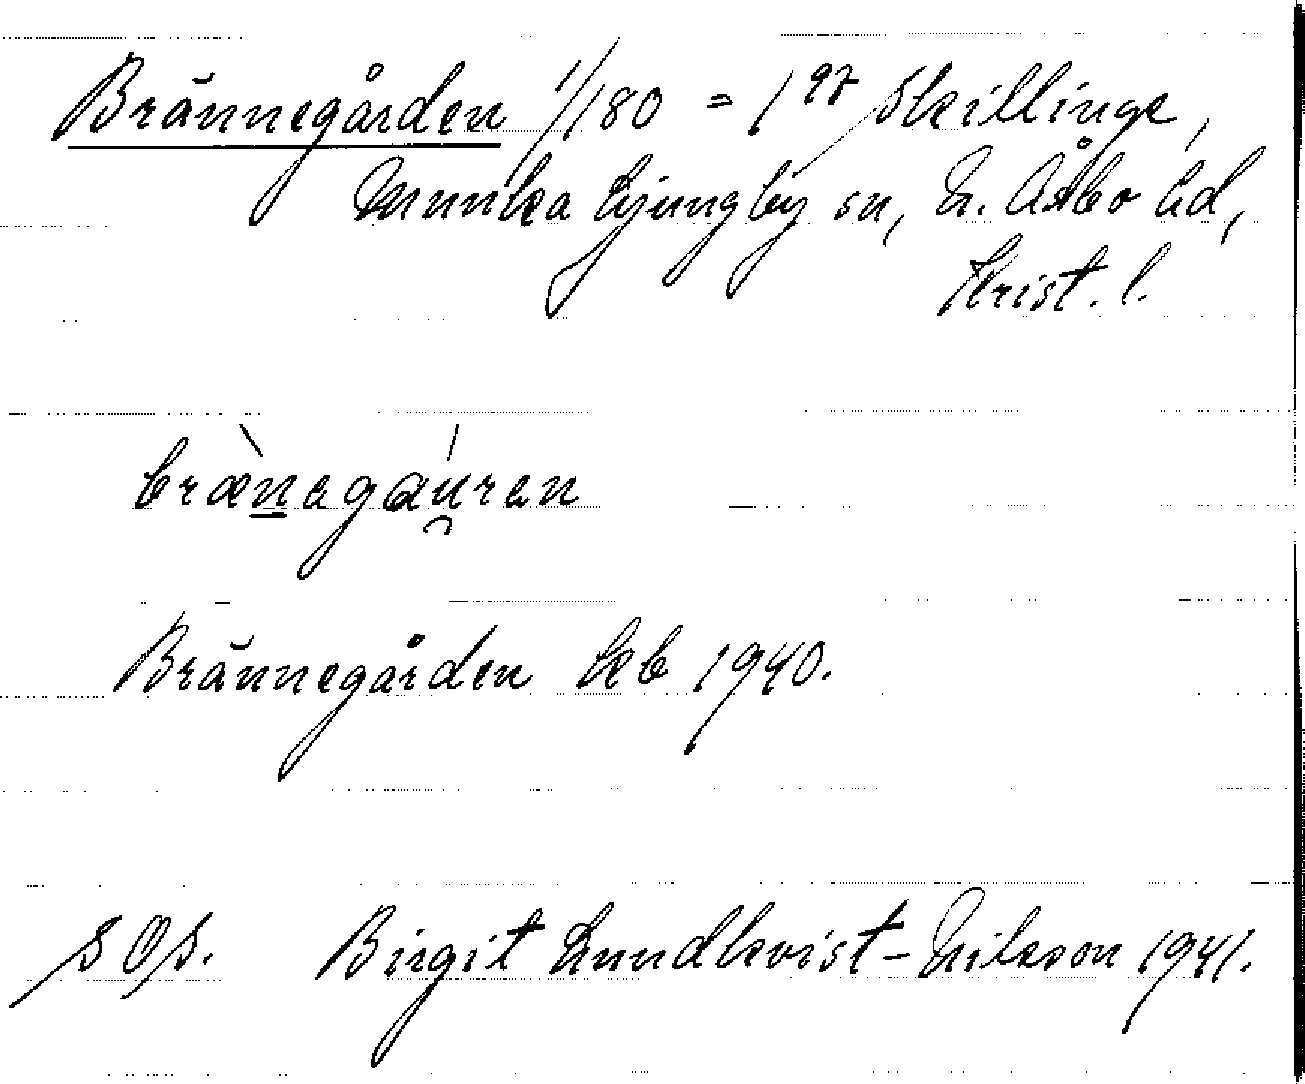 Brännegården 1/180 = 1 97 Skillinge,
Munka Ljungby sn, N. Åsbo hd,
Krist. l.
brænegauren
Brännegården Ekb 1940.
SOS. Birgit Lundkvist-Nilsson 1941.